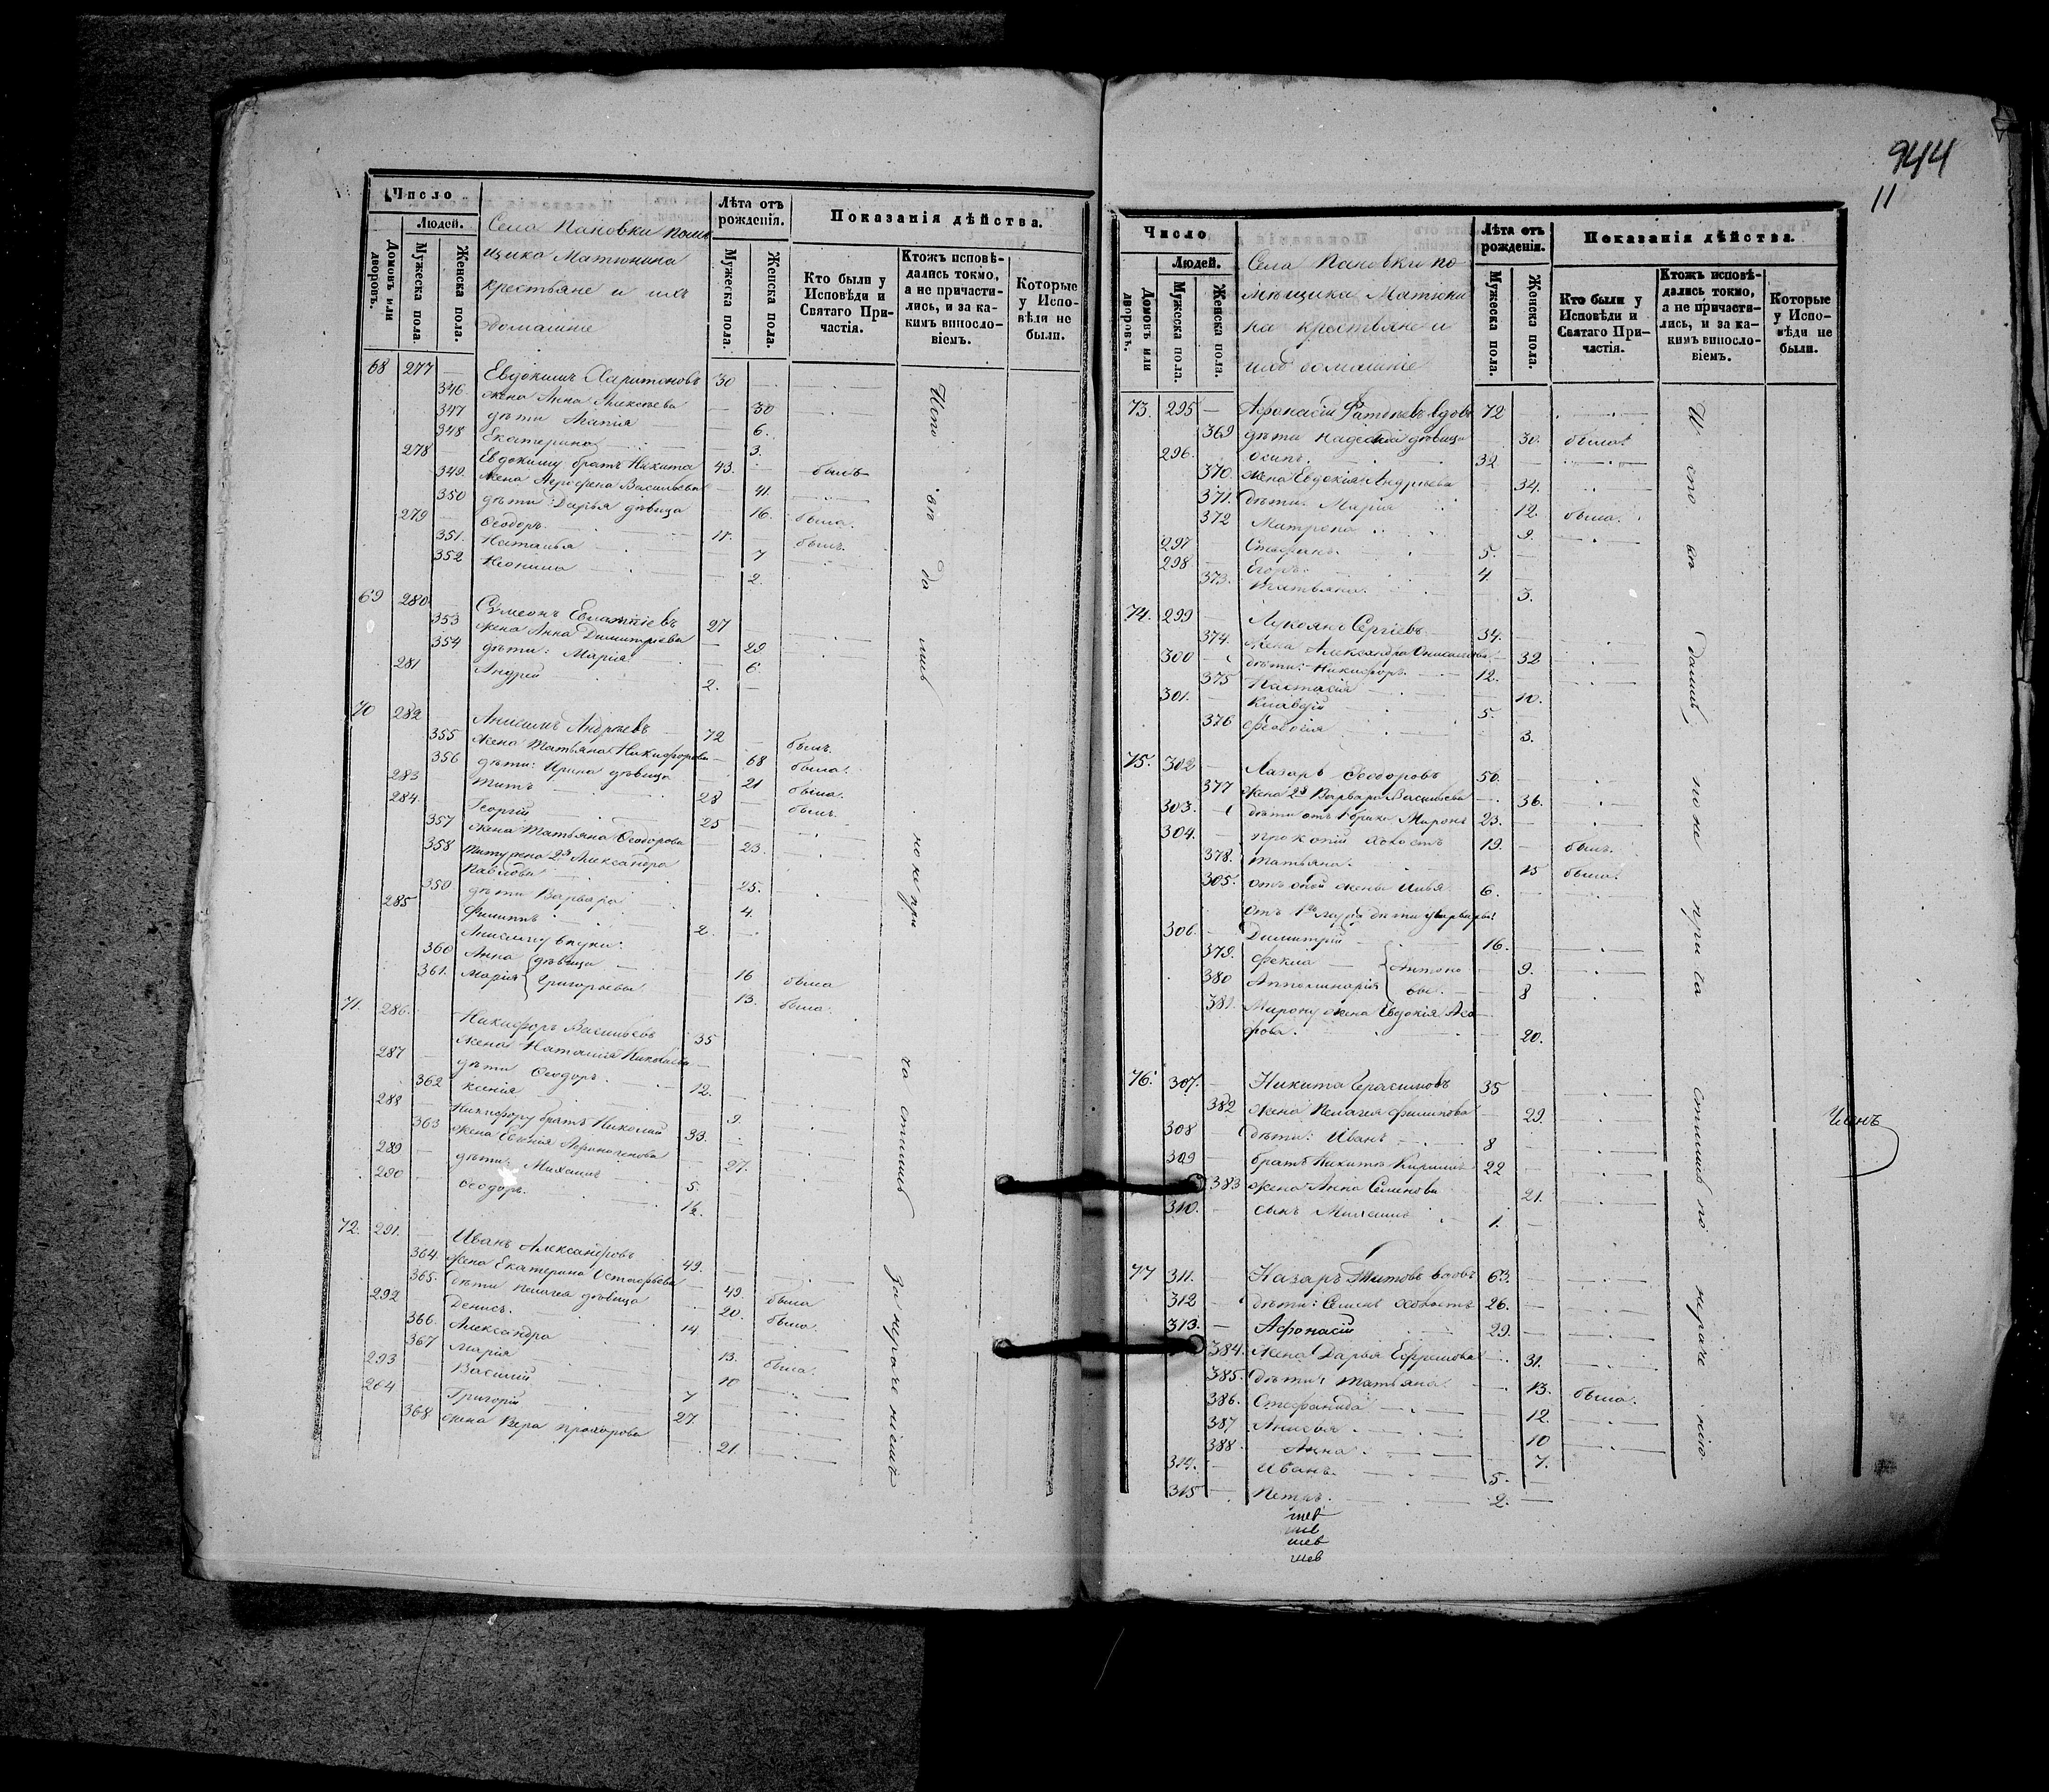 Число
Людей.
Домовъ или дворовъ.
Мужеска пола.
Женска пола.
Села Пановки помѣ
щика Матюнина
крестьяне и ихъ
домашніе
Лѣта отъ рожденія.
Мужеска пола.
Женска пола.
Показанія дѣйства.
Кто были у Исповѣди и Святаго Причастія.
Ктожъ исповѣдались токмо, а не причастились, и за какимъ винословіемъ.
Которые у Исповѣди не были.
68 277 — Евдокимъ Харитоновъ 30 —
346 жена Анна Алексѣева — 30
347 дѣти Марія — 6.
348 Екатерина — 3.
278 Евдокиму братъ Никита 43. — былъ
349. жена Агрофена Васильева 41.
350 дѣти: Дарья дѣвица — 16. была.
279 — Ѳеодоръ. 11. былъ.
351. Наталья — 7
352 Неонила — 2.
69 280. Сѵмеонъ Евлампіевъ 27
353 жена Анна Димитріева — 29
354 дѣти: Марія 6.
281 Андрей 2. —
70 282 Анисимъ Андреевъ — 72 — былъ.
355 жена Татьяна Никифорова — 68 была.
356 дѣти: Ирина дѣвица 21 была.
283 Титъ — 28 — былъ.
284. Георгій 25 —
357 жена Татьяна Ѳеодорова 23.
358 Титу жена 2я Александра
Павлова — 25.
350 дѣти Варвара 4.
285 Филиппъ 2. —
Анисиму внуки:
360 Анна дѣвица — 16 была
361. Марія Григорьевы 13. была.
71. 286. Никифоръ Васильевъ 35
жена Наталія Николаева —
287 — дѣти Ѳеодоръ. 12.
362 Ксенія 9.
288 Никифору братъ Николай 33.
363 жена Евгенія Афиногенова 27.
289 — дѣти: Михаилъ 5.
290 — Ѳеодоръ. 1½.
72. 291. — Иванъ Александровъ 49.
364. жена Екатерина Остафьева — 49. была
365. дѣти Пелагея дѣвица 20. была.
292 Денисъ. 14
366. Александра 13. была.
367 Марія 10
293 Василій — 7
264 — Григорій 27.
368 жена Вера Прохорова 21.
Испо вѣ да лись но не при ча стились за нераченіемъ
944
11
Число
Людей.
Домовъ или дворовъ.
Мужеска пола.
Женска пола.
Села Пановки по
мѣщика Матюни
на крестьяне и
ихъ домашніе
Лѣта отъ рожденія.
Мужеска пола.
Женска пола.
Показанія дѣйства.
Кто были у Исповѣди и Святаго Причастія.
Ктожъ исповѣдались токмо, а не причастились, и за какимъ винословіемъ.
Которые у Исповѣди не были.
73. 295 — Афонасій вдовъ 72
369 дѣти Надежда дѣвица 30. была.
296. Осипъ. 32
370. жена Евдокія Андреева 34.
371. дѣти. Марія 12. была.
372 Матрена 9.
297 Стефанъ. 5. —
298 Егоръ. 4. —
373. Татьяна. 3.
74. 299 — Лукоянъ Сергіевъ 34.
374. жена Александра 32
300 — дѣти: Никифоръ 12.
375 Настасія 10.
301. — Клавдій 5. —
376 Феодосія 3.
75. 302 — Лазарь Ѳеодоровъ 56.
377 жена 2я Варвара Васильева — 36.
303. — дѣти отъ 1 брака Миронъ 23.
304. — Прокопій холостъ 19. — былъ.
378. Татьяна. 15 была.
305. отъ опой жены Илья 6. —
306. — Димитрій — 16. —
379. Фекла — Антоно 9.
380 Апполинарія вы. — 8
381. Мирону жена Евдокія
фрова. 20.
76. 307. — Никита Герасимовъ 35
382 жена Пелагея Филипова 29.
308 — дѣти: Иванъ 8
309 — братъ Никитѣ Кирилъ 22 —
383 жена Анна Семенова 21.
310. — сынъ Михаилъ 1. —
77 311. — Назаръ Титовъ вдовъ 63. —
312 — дѣти: Семенъ холостъ 26. —
313. — Афонасій 29. —
384. жена Дарья Ефремова — 31.
385. дѣти: Татьяна — 13. была.
386. Стефанида 12.
387 Анисья 10
388. Анна 7.
314. — Иванъ. 5. —
315 — Петръ. 2. —
И спо вѣ дались но не при ча стились по нераче нію